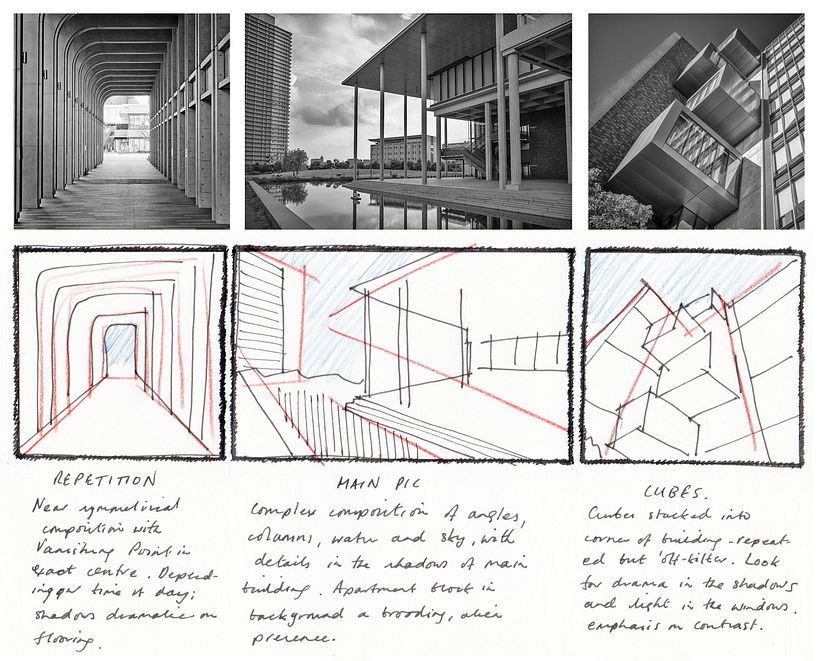 REPETITION
Near symmetrical
composition with
Vanishing Point in
exact centre. Depend-
ing on time of day;
shadows dramatic on
flooring.
MAIN PIC
Complex composition of angles,
columns, water and sky, with
details in the shadows of main
building. Apartment block in
background a brooding, alien
presence.
CUBES.
Cubes stacked into
corner of building - repeat-
ed but 'off-kilter. Look
for drama in the shadows
and light in the windows.
emphasis on contrast.